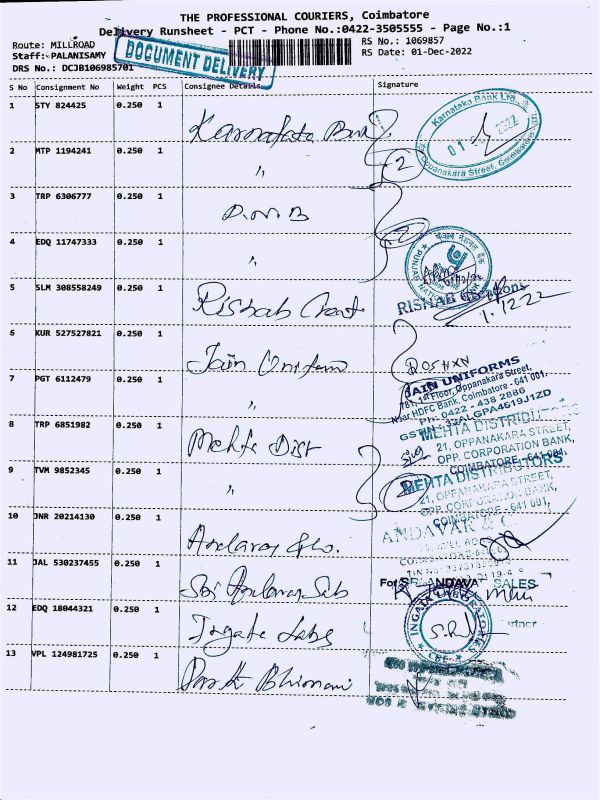 THE PROFESSIONAL COURIERS, Coimbatore
Delivery Runsheet - PCT - Phone No.:0422-3505555 - Page No.:1
Route: MILLROAD
RS No.: 1069857
Staff: PALANISAMY
RS Date: 01-Dec-2022
DRS No.: DCJB106985701
DOCUMENT DELIVERY
S No Consignment No Weight PCS Consignee Details Signature
1 STY 824425 0.250 1
Karnataka Bank Ltd.,
01 2022
Oppanakara Street, Coimbatore
2 MTP 1194241 0.250 1 "
2
3 TRP 6306777 0.250 1 P.N.B
2
4 EDQ 11747333 0.250 1 "
5 SLM 308558249 0.250 1 Rishab Creat
RISHAB
1.12.22
6 KUR 527527821 0.250 1 Jain Uniform
ROSHAN
JAIN UNIFORMS
781, 1st Floor, Oppanakara Street,
Near HDFC Bank, Coimbatore - 641 001.
PH: 0422 - 438 2886
7 PGT 6112479 0.250 1 "
8 TRP 6851982 0.250 1 Mehta Dist
MEHTA DISTRIBUTORS
21, OPPANAKARA STREET,
OPP. CORPORATION BANK,
COIMBATORE - 641 001.
9 TVM 9852345 0.250 1 "
MEHTA DISTRIBUTORS
21, OPPANAKARA STREET,
OPP. CORPORATION BANK,
COIMBATORE - 641 001.
10 JNR 20214130 0.250 1 Andavar & Co.
ANDAVAR & C
11 JAL 530237455 0.250 1 Sri Andavar Sab
For SRI ANDAVAR SALES
12 EDQ 18044321 0.250 1 Ingate Labs
13 VPL 124981725 0.250 1 Bhimani